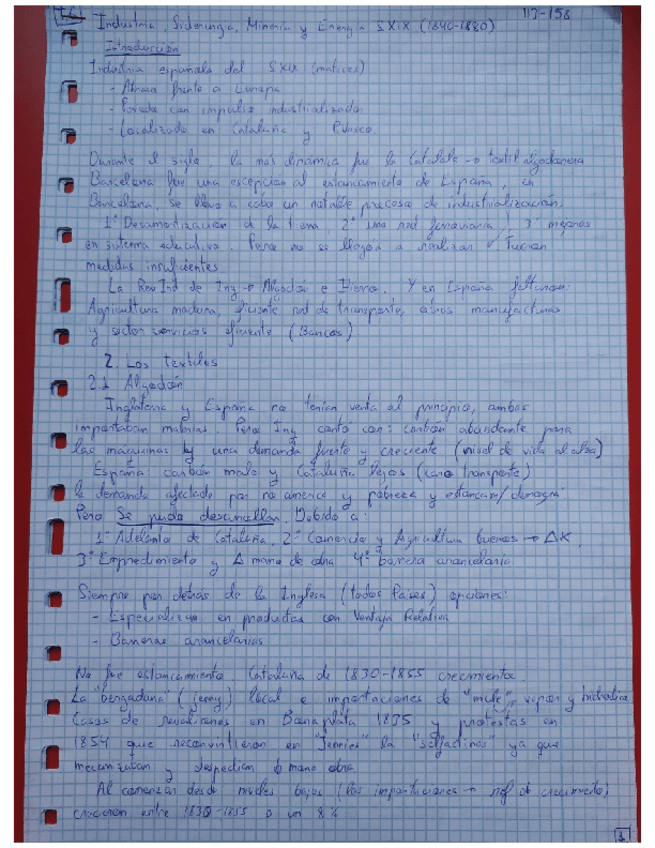 Industria, Siderurgia, Minería y Energía SXIX (1840-1880) 113-158
Introducción
Industria española del SXIX (matices)
- Atraso frente a Europa
- Periodo con impulso industrializador
- Localizado en Cataluña y P.Vasco
Durante el siglo, la mas dinámica fue la Catalana → textil algodonera
Barcelona fue una escepción al estancamiento de España, en
Barcelona, se llevo a cabo un notable proceso de industrialización.
1º Desamortización de la tierra 2º una red ferroviaria, 3º mejoras
en sistema educativo. Pero no se llegan a realizar Fueron
medidas insuficientes
La Rev Ind de Ing → Algodon e Hierro. Y en España faltaron:
Agricultura madura, eficiente red de transporte, otras manufacturas
y sector servicios eficiente (Bancos)
2. Los textiles
2.1 Algodón
Inglaterra y España no tenian venta al principio, ambos
importaban materias. Pero Ing contó con: carbón abundante para
las máquinas y una demanda fuerte y creciente (nivel de vida al alza)
España: carbón malo y Cataluña lejos (caro transporte)
la demanda afectada por no america y pobreza y estancam/demogra
Pero Se pudo desarrollar. Debido a:
1º Adelanto de Cataluña, 2º Comercio y Agricultura buenos → ΔK,
3º Emprendimiento y Δ mano de obra 4º barrera arancelaria
Siempre por detras de la Inglesa (todos Paises) opciones:
- Especializar en productos con Ventaja Relativa
- Barreras arancelarias
No fue estancamiento. Cataluña de 1830-1855 crecimiento
La "bergadana" (jenny) local e importaciones de "mule", vapor y hidraulica
Casos de revoluciones en Bonaplata 1835 y protestas en
1854 que reconvirtieron en "Jennies" la "selfactinas ya que
mecanizaban y despedian mano obra
Al comenzar desde niveles bajos (las importaciones → ref de crecimiento)
crecieron entre 1830-1855 a un 8%
1